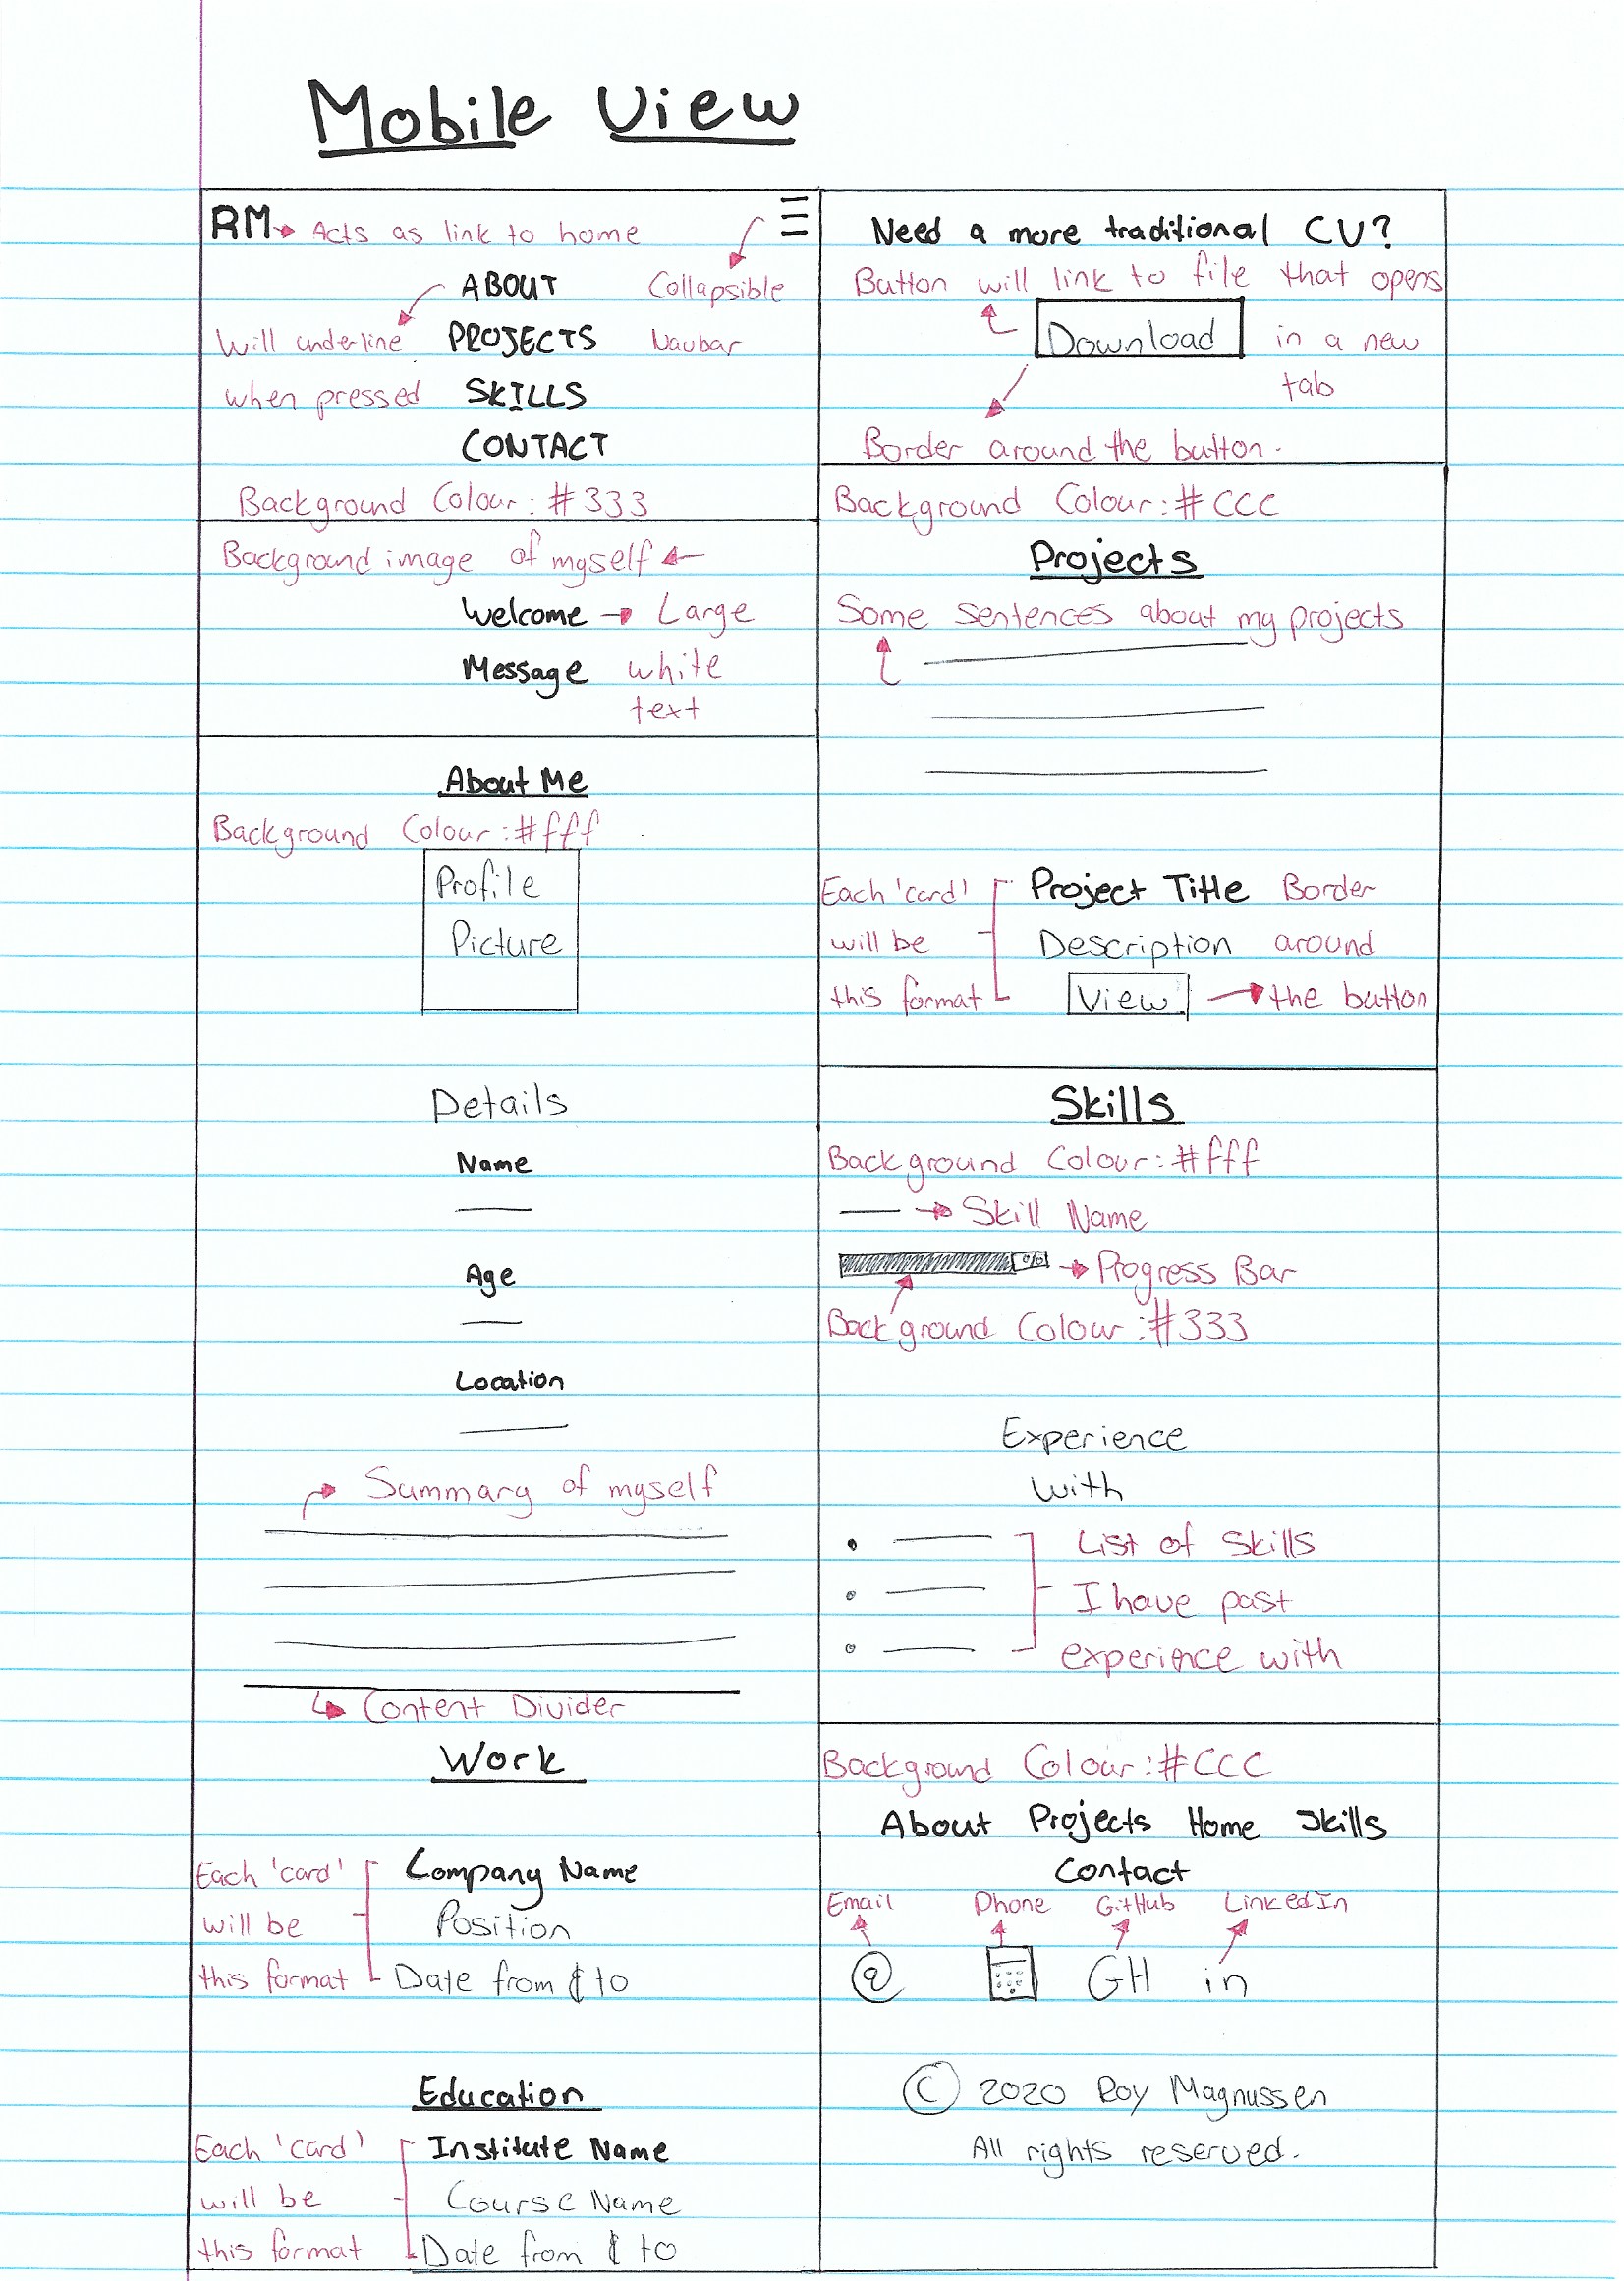 Mobile View
RM Acts as link to home
ABOUT Collapsible
Will underline PROJECTS Navbar
when pressed SKILLS
CONTACT
Background Colour: #333
Background image of myself
Welcome Large
Message white
text
About Me
Background Colour: #fff
Profile
Picture
Details
Name
Age
Location
Summary of myself
Content Divider
Work
Each 'card' Company Name
will be Position
this format Date from & to
Education
Each 'card' Institute Name
will be Course Name
this format Date from & to
Need a more traditional CV?
Button will link to file that opens
Download in a new
tab
Border around the button.
Background Colour: #CCC
Projects
Some sentences about my projects
Each 'card' Project Title Border
will be Description around
this format View the button
Skills
Background Colour: #fff
Skill Name
% Progress Bar
Background Colour: #333
Experience
with
List of skills
I have past
experience with
Background Colour: #CCC
About Projects Home Skills
Contact
Email Phone GitHub LinkedIn
@ GH in
© 2020 Roy Magnussen
All rights reserved.